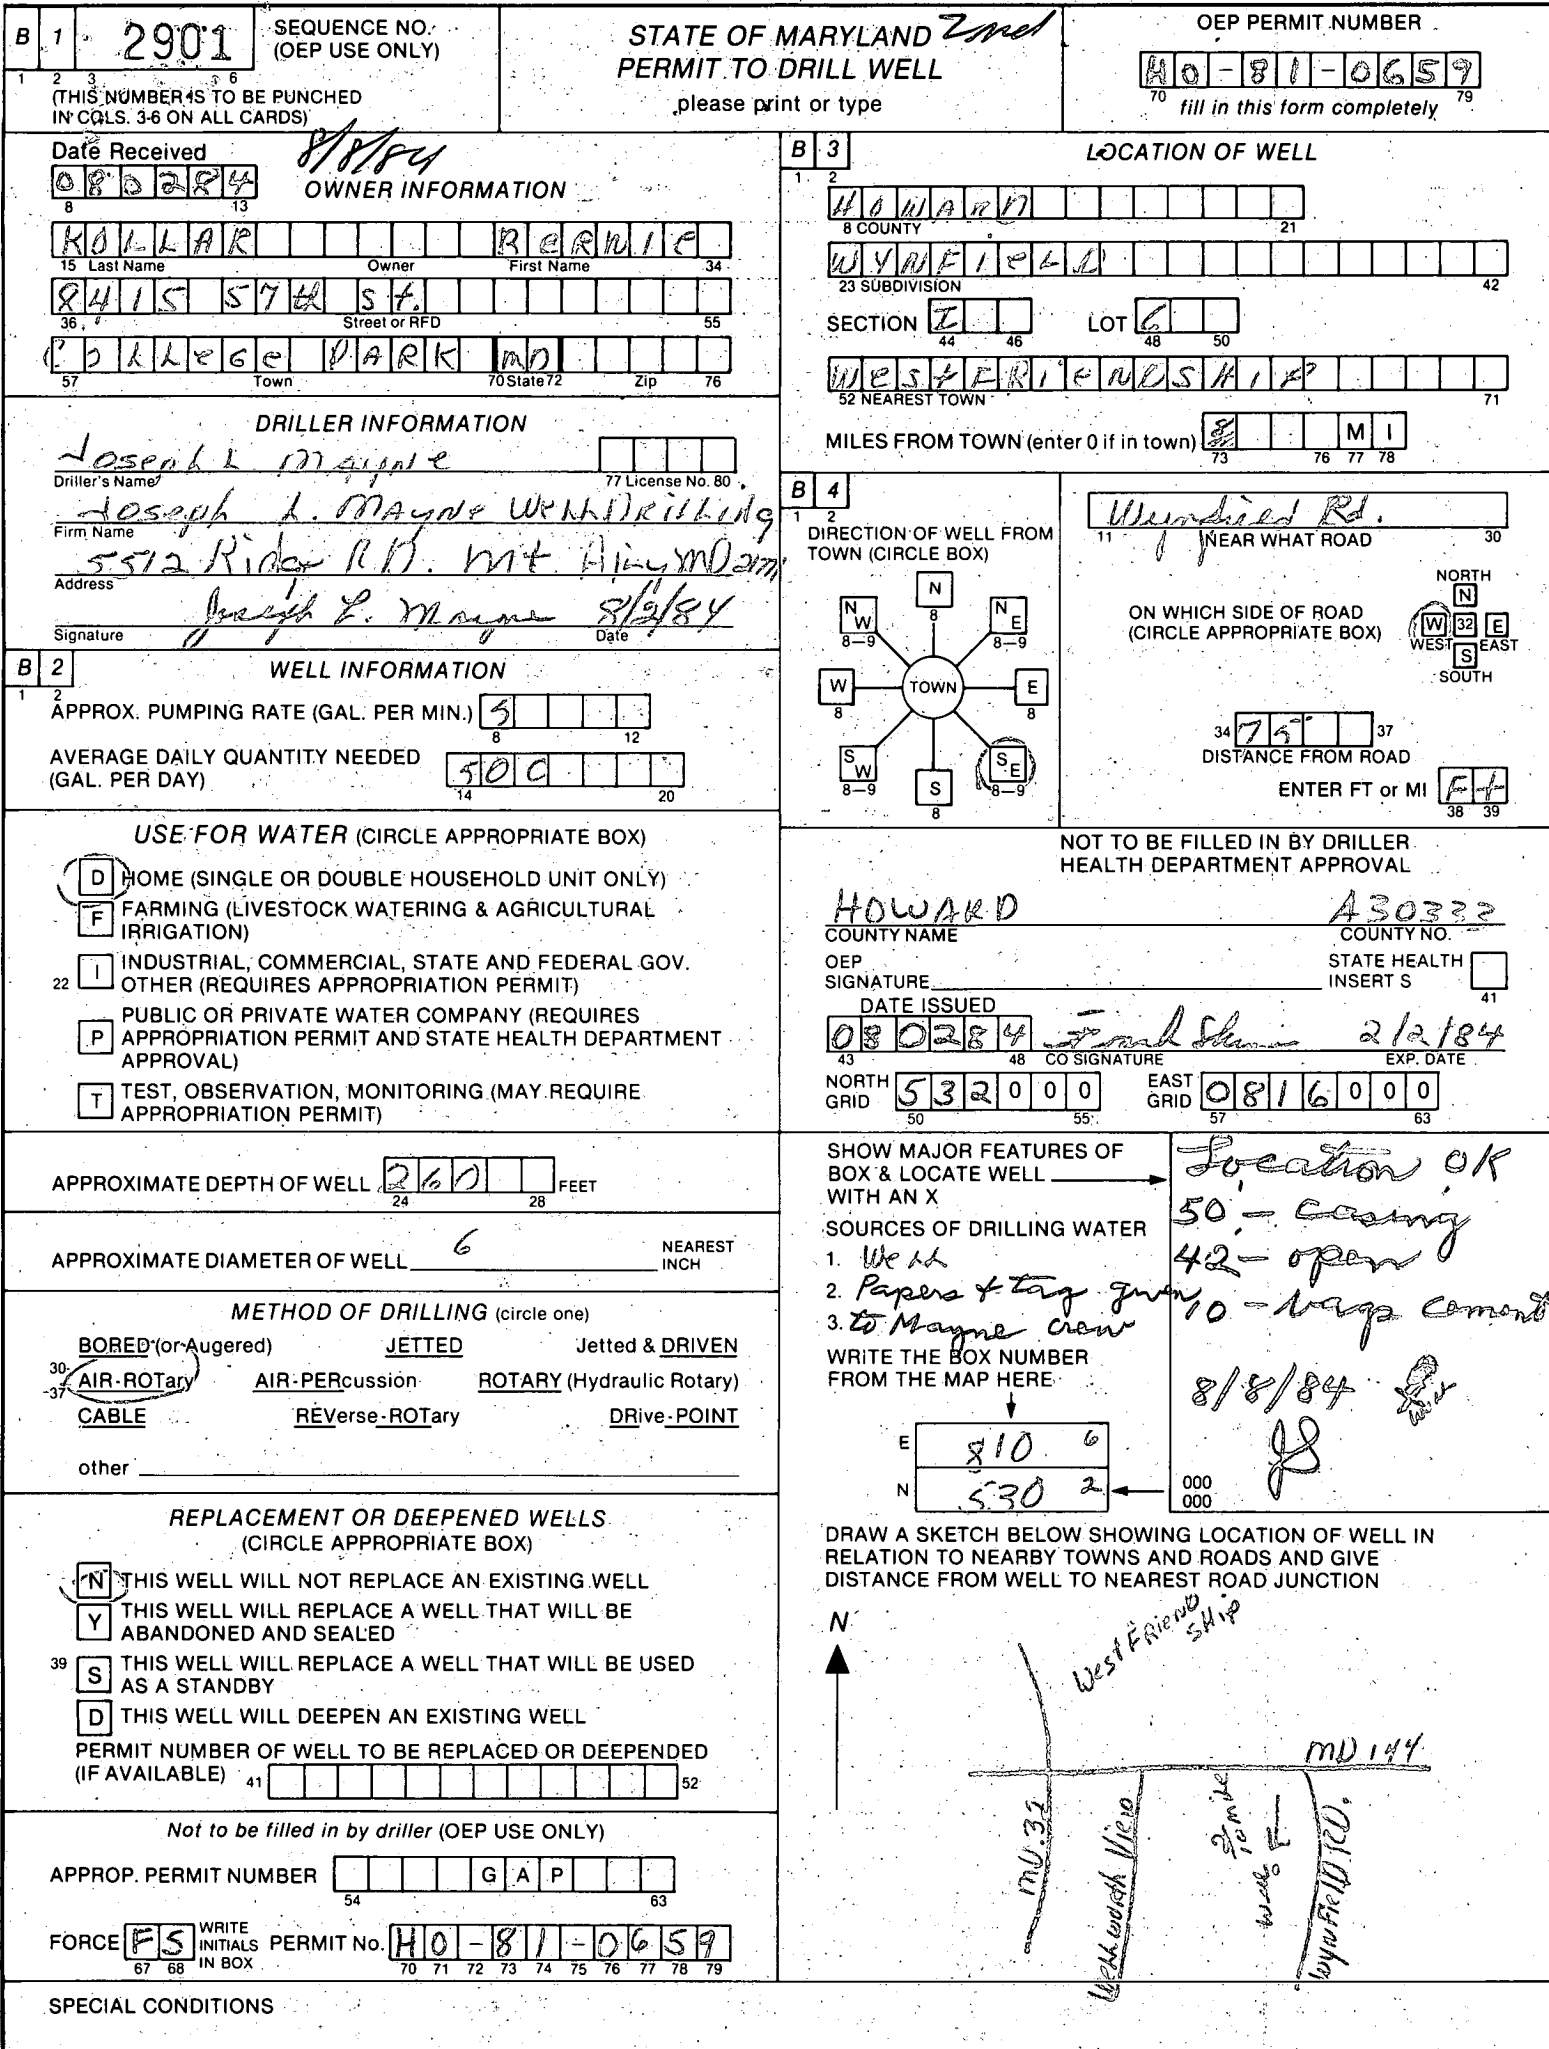 B 1 2901 SEQUENCE NO. (OEP USE ONLY)
1 2 3 6
(THIS NUMBER IS TO BE PUNCHED
IN COLS. 3-6 ON ALL CARDS)
STATE OF MARYLAND 2nd
PERMIT TO DRILL WELL
please print or type
OEP PERMIT NUMBER
HO-81-0659
70 79
fill in this form completely
Date Received 8/8/84
080284
8 13
OWNER INFORMATION
KOLLAR BERNIE
15 Last Name Owner First Name 34
8415 57th St.
36 Street or RFD 55
College PARK MD
57 Town 70 State 72 Zip 76
DRILLER INFORMATION
Joseph L Mayne
Driller's Name 77 License No. 80
Joseph L. MAyNe Well DRilling
Firm Name
5512 Ridge RD. Mt. Airy MD
Address
Joseph L. Mayne 8/2/84
Signature Date
B 2 WELL INFORMATION
1 2
APPROX. PUMPING RATE (GAL. PER MIN.) 5
8 12
AVERAGE DAILY QUANTITY NEEDED
(GAL. PER DAY) 500
14 20
USE FOR WATER (CIRCLE APPROPRIATE BOX)
D HOME (SINGLE OR DOUBLE HOUSEHOLD UNIT ONLY)
F FARMING (LIVESTOCK WATERING & AGRICULTURAL
IRRIGATION)
22 I INDUSTRIAL, COMMERCIAL, STATE AND FEDERAL GOV.
OTHER (REQUIRES APPROPRIATION PERMIT)
P PUBLIC OR PRIVATE WATER COMPANY (REQUIRES
APPROPRIATION PERMIT AND STATE HEALTH DEPARTMENT
APPROVAL)
T TEST, OBSERVATION, MONITORING (MAY REQUIRE
APPROPRIATION PERMIT)
APPROXIMATE DEPTH OF WELL 260 FEET
24 28
APPROXIMATE DIAMETER OF WELL 6 NEAREST
INCH
METHOD OF DRILLING (circle one)
BORED (or Augered) JETTED Jetted & DRIVEN
30-37 AIR-ROTary AIR-PERcussion ROTARY (Hydraulic Rotary)
CABLE REVerse-ROTary DRive-POINT
other
REPLACEMENT OR DEEPENED WELLS
(CIRCLE APPROPRIATE BOX)
N THIS WELL WILL NOT REPLACE AN EXISTING WELL
Y THIS WELL WILL REPLACE A WELL THAT WILL BE
ABANDONED AND SEALED
39 S THIS WELL WILL REPLACE A WELL THAT WILL BE USED
AS A STANDBY
D THIS WELL WILL DEEPEN AN EXISTING WELL
PERMIT NUMBER OF WELL TO BE REPLACED OR DEEPENDED
(IF AVAILABLE) 41 52
Not to be filled in by driller (OEP USE ONLY)
APPROP. PERMIT NUMBER G A P
54 63
FORCE FS WRITE INITIALS IN BOX PERMIT No. HO-81-0659
67 68 70 71 72 73 74 75 76 77 78 79
SPECIAL CONDITIONS
B 3 LOCATION OF WELL
1 2
HOWARD
8 COUNTY 21
WYNFIELD
23 SUBDIVISION 42
SECTION I LOT 6
44 46 48 50
West FRIENDSHIP
52 NEAREST TOWN 71
MILES FROM TOWN (enter 0 if in town) MI
73 76 77 78
B 4
1 2
DIRECTION OF WELL FROM
TOWN (CIRCLE BOX)
N
8
NW NE
8-9 8-9
W TOWN E
8 8
SW SE
8-9 8-9
S
8
Rd.
11 NEAR WHAT ROAD 30
ON WHICH SIDE OF ROAD
(CIRCLE APPROPRIATE BOX)
NORTH
N
W 32 E
WEST EAST
S
SOUTH
34 75 37
DISTANCE FROM ROAD
ENTER FT or MI Ft
38 39
NOT TO BE FILLED IN BY DRILLER
HEALTH DEPARTMENT APPROVAL
HOWARD A30333
COUNTY NAME COUNTY NO.
OEP
SIGNATURE
STATE HEALTH
INSERT S
41
DATE ISSUED
080284 2/2/84
43 48 CO SIGNATURE EXP. DATE
NORTH GRID 532000 EAST GRID 0816000
50 55 57 63
SHOW MAJOR FEATURES OF
BOX & LOCATE WELL
WITH AN X
SOURCES OF DRILLING WATER
1. Well
2. Papers & tag given
3. to Mayne crew
WRITE THE BOX NUMBER
FROM THE MAP HERE
E 810 6
N 530 2
Location OK
50 - casing
42 - open
10 - bags cement
8/8/84
JS
000
000
DRAW A SKETCH BELOW SHOWING LOCATION OF WELL IN
RELATION TO NEARBY TOWNS AND ROADS AND GIVE
DISTANCE FROM WELL TO NEAREST ROAD JUNCTION
N
West FRIEND SHip
MD 144
MD. 32
WynField RD.